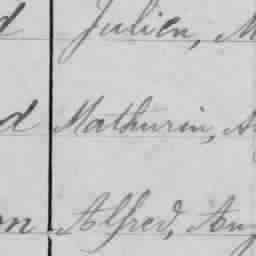 d Julien, M
d Mathurin, A
on Alfred, Aug